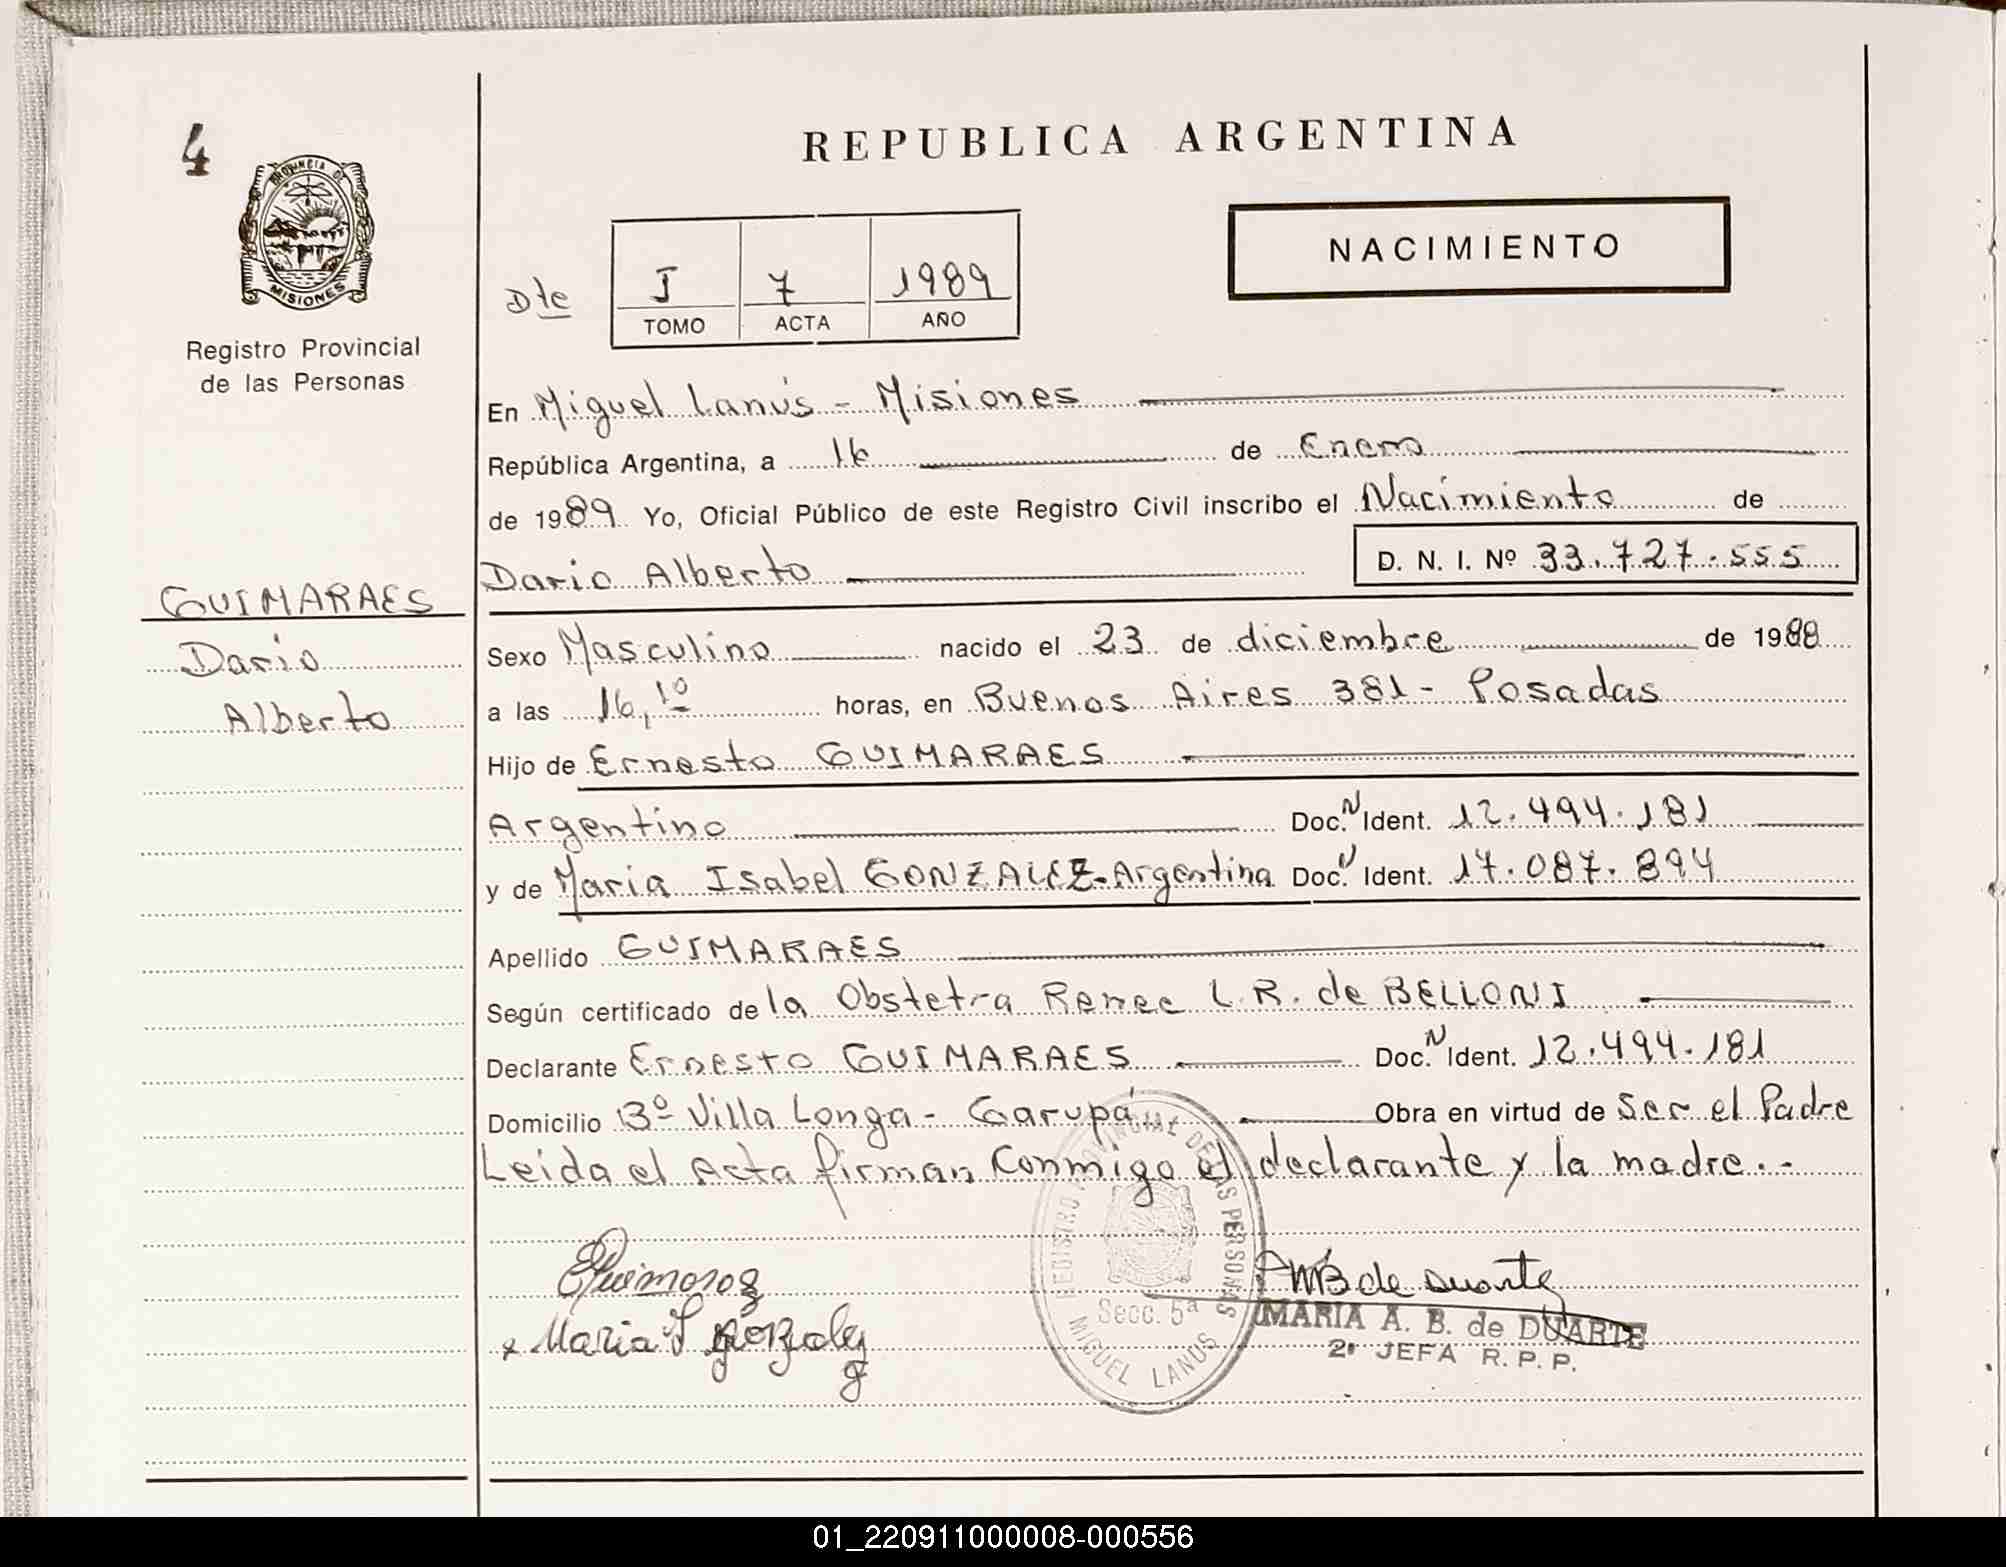 4
PROVINCIA DE
MISIONES
Registro Provincial
de las Personas
GUIMARAES
Dario
Alberto
REPUBLICA ARGENTINA
NACIMIENTO
Dte
I 7 1989
TOMO ACTA AÑO
En Miguel Lanús - Misiones
República Argentina, a 16 de Enero
de 1989 Yo, Oficial Público de este Registro Civil inscribo el Nacimiento de
Dario Alberto D. N. I. Nº 33.727.555
Sexo Masculino nacido el 23 de diciembre de 1988
a las 16,10 horas, en Buenos Aires 381 - Posadas
Hijo de Ernesto GUIMARAES
Argentino Doc. N Ident. 12.494.181
y de Maria Isabel GONZALEZ - Argentina Doc. N Ident. 17.087.894
Apellido GUIMARAES
Según certificado de la Obstetra Renee L. R. de BELLONI
Declarante Ernesto GUIMARAES Doc. N Ident. 12.494.181
Domicilio Bº Villa Longa - Garupá Obra en virtud de Ser el Padre
Leida el Acta firman Conmigo el declarante y la madre.-
EGuimaraes
x Maria I gonzalez
REGISTRO PROVINCIAL DE LAS PERSONAS
Secc. 5ª
MIGUEL LANUS
AMB de Duarte
MARIA A. B. de DUARTE
2ª JEFA R. P. P.
01_220911000008-000556